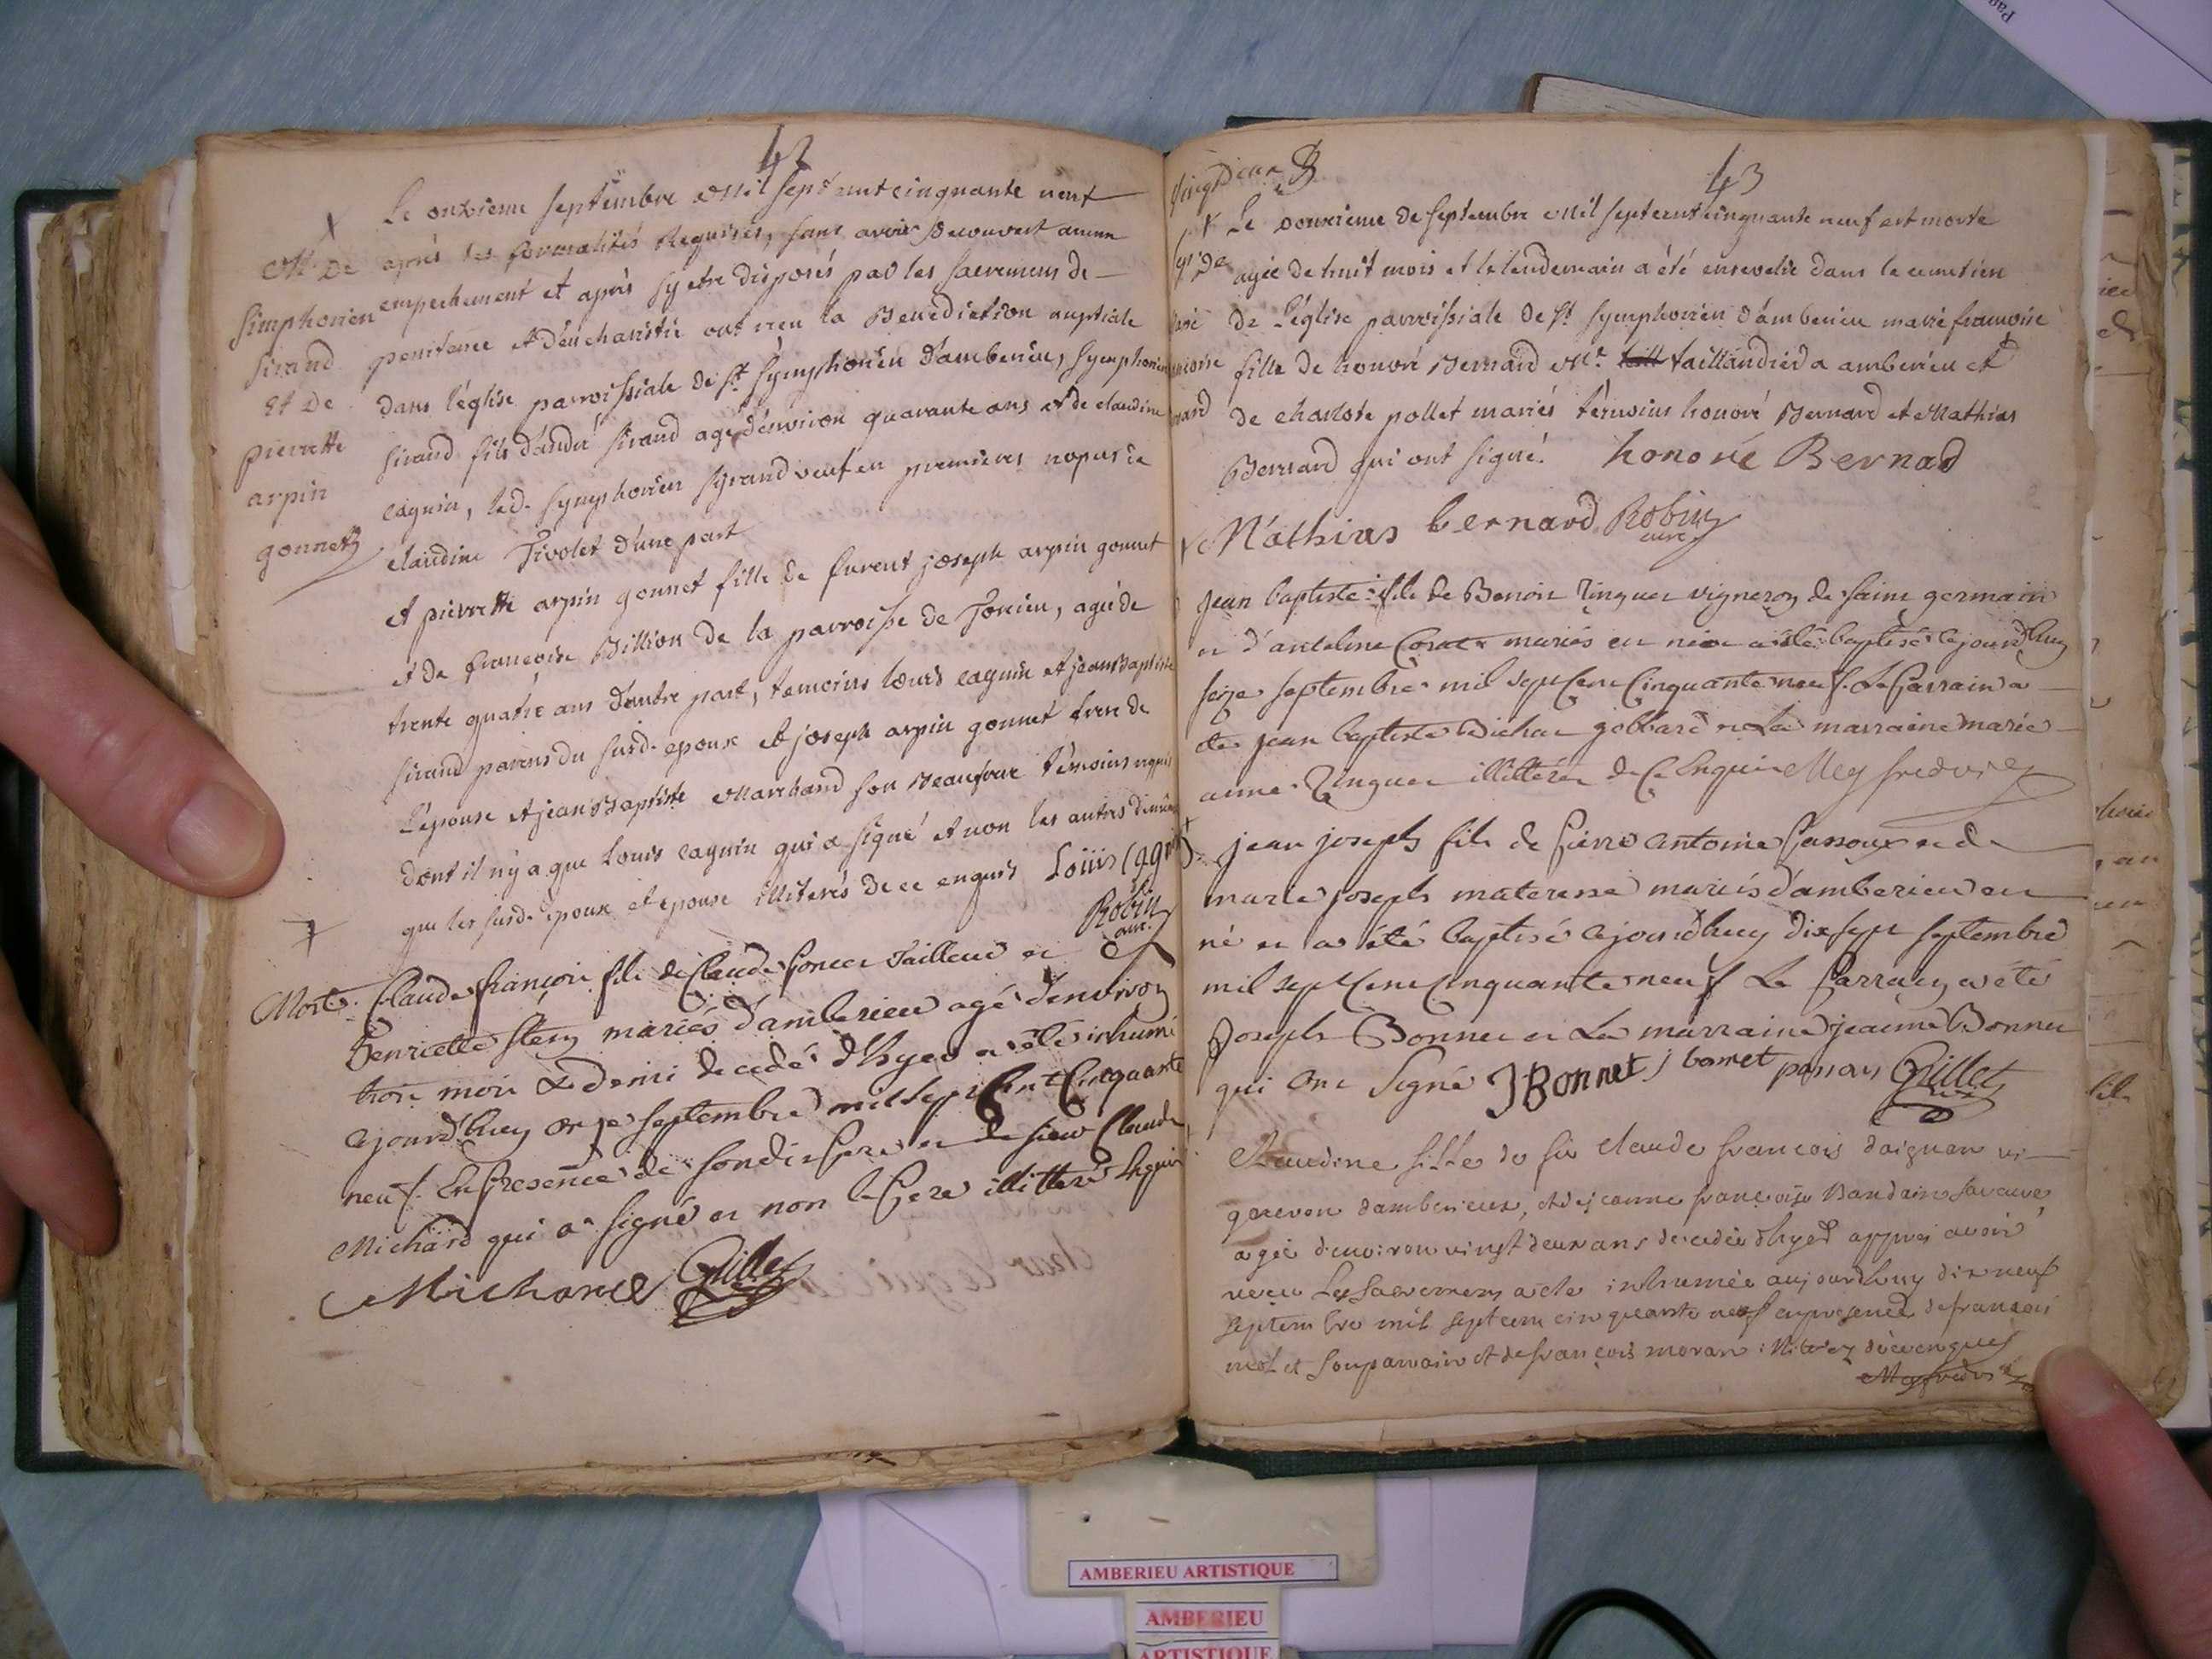 42
Le onzieme septembre mil sept cent cinquante neuf
après les formalités requises, sans avoir decouvert aucun
empechement et après sy etre disposés par les sacremens de
penitence et d'eucharistie ont recu la Benediction nuptiale
dans l'église parroissiale de st symphorien d'amberieu, symphorien
sirand fils d'andré sirand agé d'environ quarante ans et de claudine
cagnin, led. symphorien syrand veuf en premieres nopces de
claudine Tivolet d'une part
et pierrette arpin gonnet fille de furent joseph arpin gonnet
et de françoise Billion de la parroisse de Torcieu, agée de
trente quatre ans d'autre part, temoins louis cagnin et jean Baptiste
sirand parens du susd. epoux et joseph arpin gonnet frere de
l'epouse et jean Baptiste Marchand son Beaufrere temoins requis
dont il n'y a que Louis cagnin qui a signé et non les autres
que les susd. epoux et epouse illiterés de ce enquis Loüis
Robin
curé
M. De
simphorien
sirand
et De
pierrette
arpin
gonnet
Mort. Claude françois fils de Claude Tailleur et
henriette mariés d'amberieu agé d'environ
trois mois et demi decedé d'hyer a été inhumé
cejourd'huy onze septembre mil sept cent cinquante
neuf. En presence de sondit pere et de sieur Claude
Michard qui a signé et non le pere illitteré enquis
Michard Grillet
43
vingt deux
Le douzieme de septembre mil sept cent cinquante neuf est morte
agée de huit mois et le lendemain a été ensevelie dans le cimetiere
de l'église parroissiale de st symphorien d'amberieu marie françoise
fille de honoré Bernard Mr. taill taillandier a amberieu et
de charlote pollet mariés temoins honoré Bernard et Mathias
Bernard qui ont signé. honoré Bernad
Mathias bernard Robin
curé
jean baptiste fils de Benoit vigneron de saint germain
et d'anteline mariés est né et a été baptisé cejourd'huy
seize septembre mil sept cent cinquante neuf. Le Parrain a
été jean baptiste et La marraine marie
anne illitérés de ce Enquis Meyfredvie
jean joseph fils de Pierre antoine et de
marie joseph materesse mariés d'amberieu est
né et a été baptisé cejourd'huy dix sept septembre
mil sept cent cinquante neuf Le Parrain a été
Joseph Bonnet et La marraine jeanne Bonnet
qui ont signé J Bonnet j bonnet Grillet
Claudine fille de fû claude françois daignan vi
gneron d'amberieux, et de jeanne françoise Baudain sa veuve
agée d'environ vingt deux ans decedée d'hyer apprès avoir
recu Les sacremens a été inhumée aujourdhuy dix neuf
septembre mil sept cent cinquante neuf en presence de françois
molet son parrain et de françois moran illitérez de ce enquis
Meyfredvie
AMBERIEU ARTISTIQUE
AMBERIEU
ARTISTIQUE